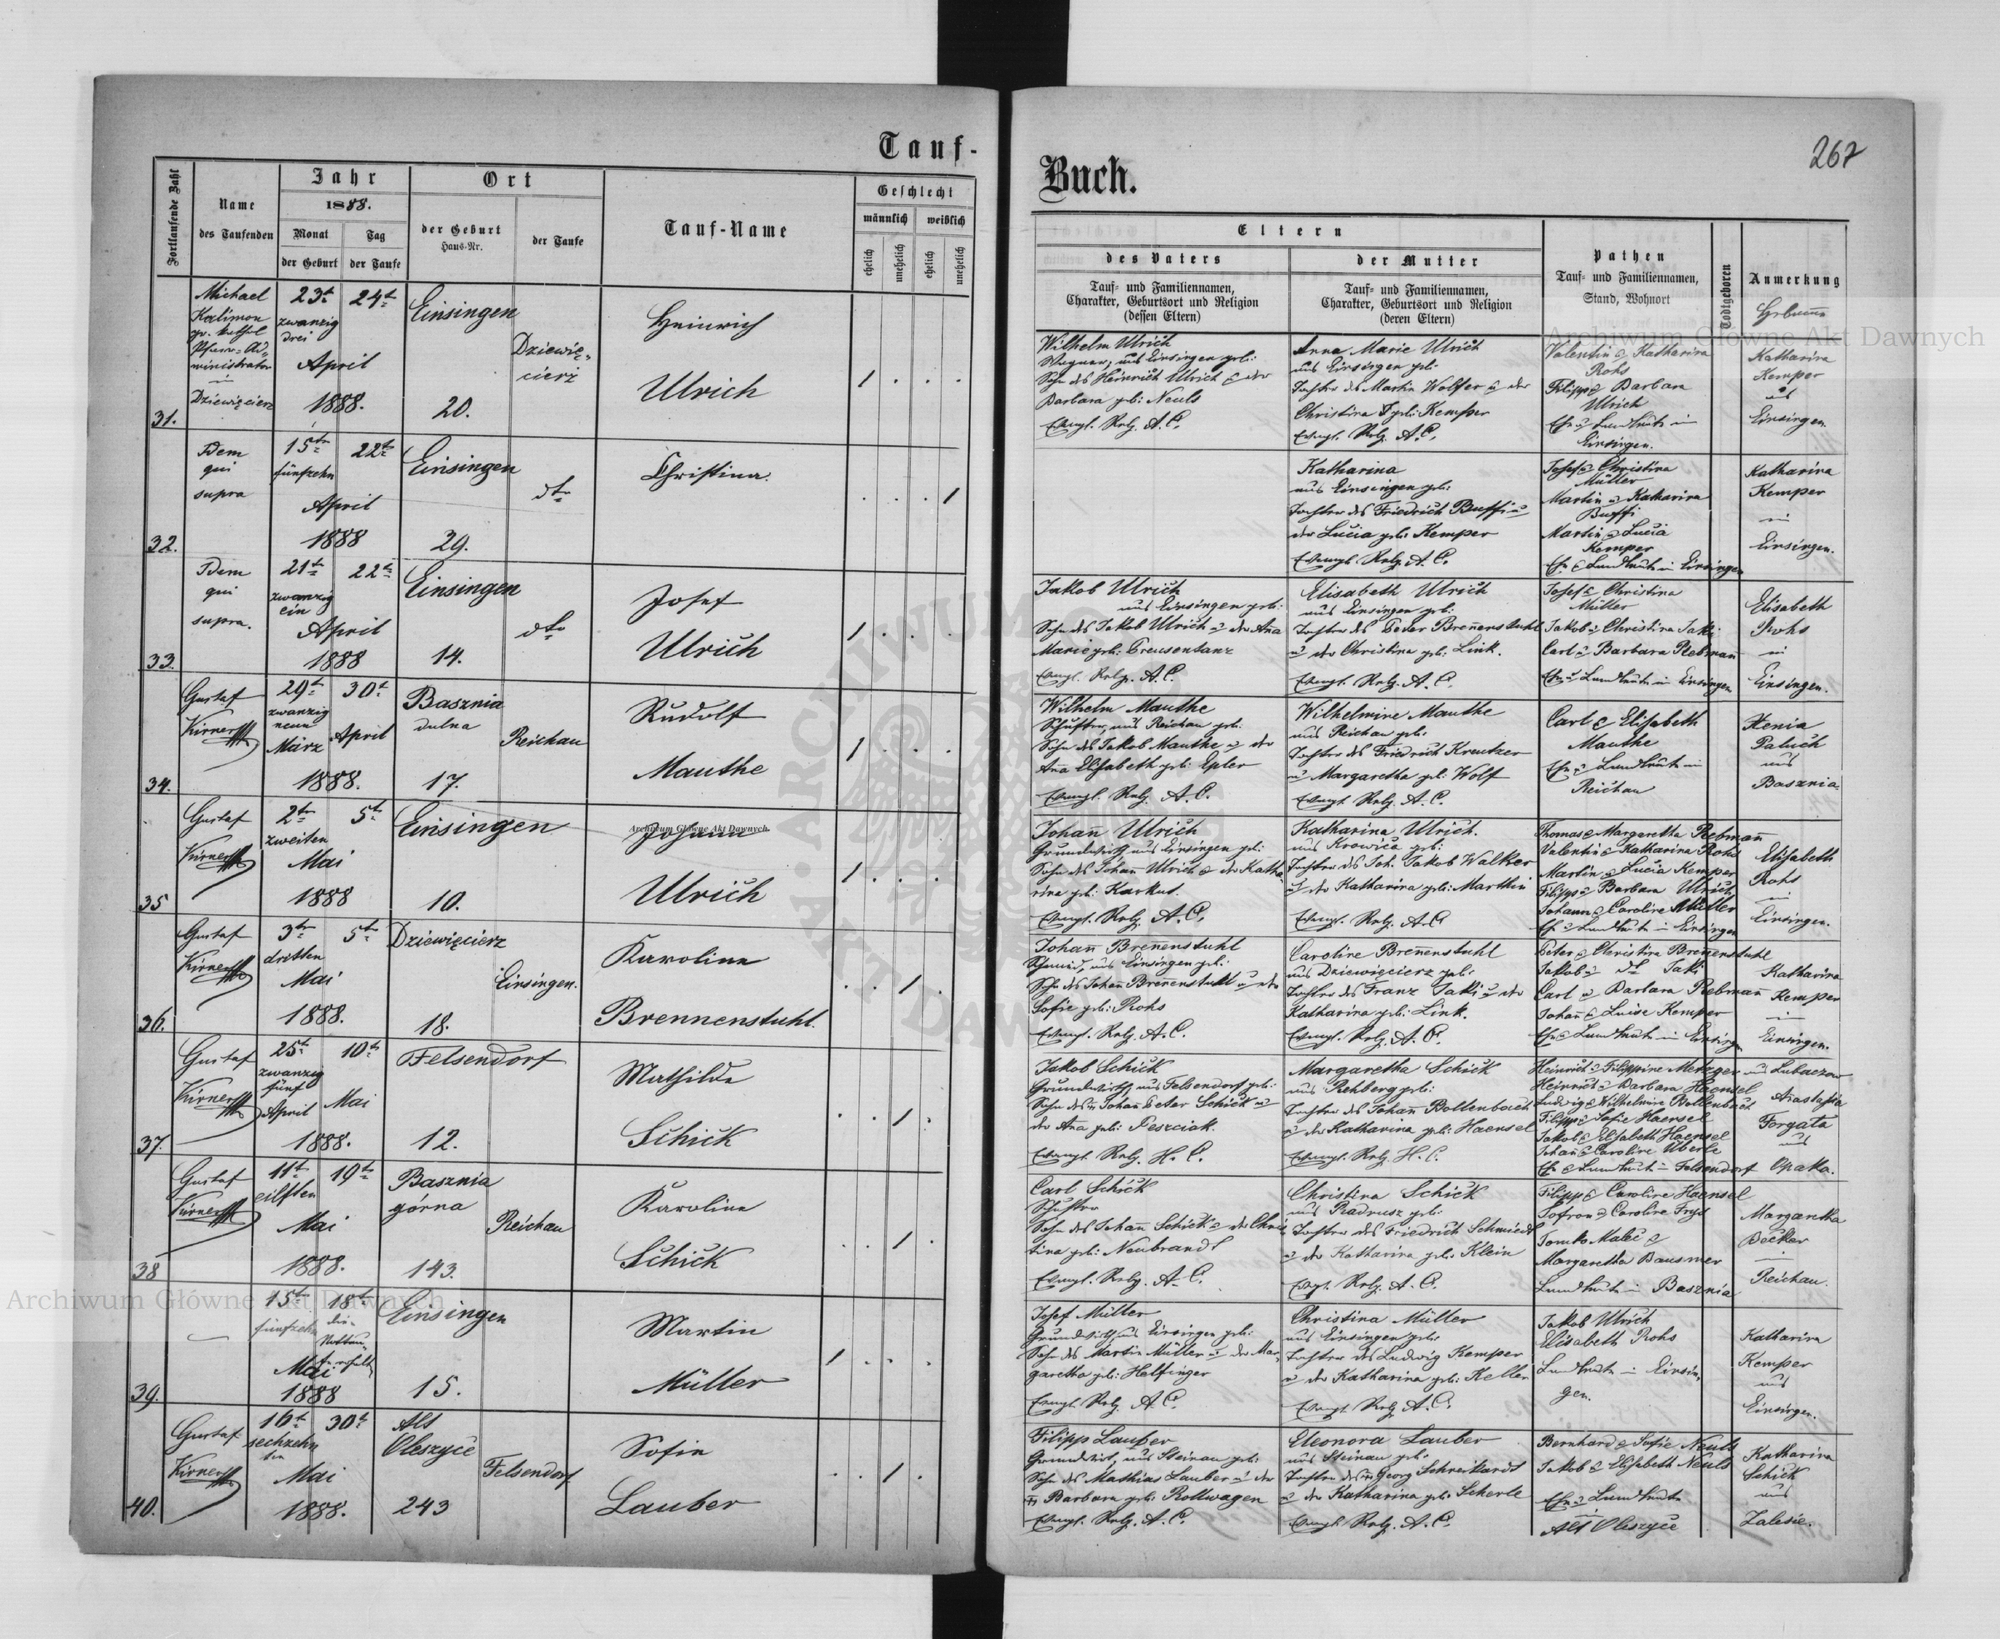 Tauf-
Fortlaufende Zahl
Name
des Taufenden
Jahr
1888.
Monat
der Geburt
Tag
der Taufe
Ort
der Geburt
Haus-Nr.
der Taufe
Tauf-Name
Geschlecht
männlich
weiblich
ehelich
unehelich
ehelich
unehelich
31.
Michael
Kalimon
Pfarr-Ad-
ministrator
in
Dziewięcierz
23t
24t
zwanzig
drei
April
1888.
Einsingen
20.
Dziewię-
cierz
Heinrich
Ulrich
32.
Idem
qui
supra
15te
22te
fünfzehn
April
1888
Einsingen
29.
dto
Christina.
33.
Idem
qui
supra.
21te
22te
zwanzig
ein
April
1888
Einsingen
14.
dto
Josef
Ulrich
34.
Gustaf
Kirner
29t
30t
zwanzig
neun
März
April
1888.
Basznia
dolna
17.
Reichau
Rudolf
Mauthe
35
Gustaf
Kirner
2te
5t
zweiten
Mai
1888
Einsingen
10.
Johann
Ulrich
36.
Gustaf
Kirner
3te
5te
dritten
Mai
1888.
Dziewięcierz
18.
Einsingen.
Karoline
Brennenstuhl.
37.
Gustaf
Kirner
25t
10t
zwanzig
fünf
April
Mai
1888.
Felsendorf
12.
Mathilde
Schick
38
Gustaf
Kirner
11te
19te
eilften
Mai
1888.
Basznia
górna
143.
Reichau
Karoline
Schick
39.
15t
18t
fünfzehn
die
Nottau-
fe erhalt.
Mai
1888
Einsingen
15.
Martin
Müller
40.
Gustaf
Kirner
16t
30t
sechzehn
ten
Mai
1888.
Alt
Oleszyce
243
Felsendorf
Sofie
Lauber
Buch.
267
Eltern
des Vaters
Tauf- und Familiennamen,
Charakter, Geburtsort und Religion
(dessen Eltern)
der Mutter
Tauf- und Familiennamen,
Charakter, Geburtsort und Religion
(deren Eltern)
Pathen
Tauf- und Familiennamen,
Stand, Wohnort
Todtgeboren
Anmerkung
Hebamme
Wilhelm Ulrich
Wagner, aus Einsingen geb.
Sohn des Heinrich Ulrich & der
Barbara geb: Neuls
Evangl. Relg. A.C.
Anna Marie Ulrich
aus Einsingen geb.
Tochter des Martin Wolfer u der
Christina geb: Kemper
Evangl. Relg. A.C.
Valentin & Katharina
Rohs
Filipp & Barbara
Ulrich
Ehe & Landleute in
Einsingen.
Katharina
Kemper
aus
Einsingen.
Katharina
aus Einsingen geb:
Tochter des Friedrich Buffi u
der Lucia geb: Kemper
Evangl. Relg. A.C.
Josef & Christina
Müller
Martin & Katharina
Buffi
Martin & Lucia
Kemper
Ehe & Landleute in Einsingen
Katharina
Kemper
in
Einsingen.
Jakob Ulrich
aus Einsingen geb:
Sohn des Jakob Ulrich u der Ana
Marie geb: Creusentanz
Evangl. Relg. A.C.
Elisabeth Ulrich
aus Einsingen geb:
Tochter des Peter Brennenstuhl
u der Christina geb: Link.
Evangl. Relg. A.C.
Josef & Christina
Müller
Jakob & Christina Jaki
Carl & Barbara Rebmann
Ehe & Landleute in Einsingen
Elisabeth
Rohs
in
Einsingen.
Wilhelm Mauthe
Schuster, aus Reichau geb.
Sohn des Jakob Mauthe u der
Ana Elisabeth geb: Epler
Evangl. Relg. A.C.
Wilhelmine Mauthe
aus Reichau geb:
Tochter des Friedrich Kreutzer
u Margaretha geb: Wolf
Evangl. Relg. A.C.
Carl & Elisabeth
Mauthe
Ehe & Landleute in
Reichau
Xenia
Paluch
aus
Basznia.
Johann Ulrich
Grundwirth aus Einsingen geb:
Sohn des Johann Ulrich & der Katha-
rina geb: Karkut.
Evangl. Relg. A.C.
Katharina Ulrich.
aus Krowica geb:
Tochter des Joh. Jakob Walker
u der Katharina geb: Marthin
Evangl. Relg. A.C.
Thomas & Margaretha Rebmann
Valentin & Katharina Rohs
Martin & Lucia Kemper
Filipp & Barbara Ulrich
Johann & Caroline Müller
Ehe & Landleute in Einsingen
Elisabeth
Rohs
in
Einsingen.
Johann Brenenstuhl
Schmied, aus Einsingen geb:
Sohn des Johan Brenenstuhl u der
Sofie geb: Rohs
Evangl. Relg. A.C.
Caroline Brenenstuhl
aus Dziewięcierz geb:
Tochter des Franz Jaki u der
Katharina geb: Link.
Evangl. Relg. A.C.
Peter & Christina Brenenstuhl
Jakob & dto Jaki
Carl u Barbara Rebmann
Johann & Luise Kemper
Ehe & Landleute in Einsingen
Katharina
Kemper
in
Einsingen.
Jakob Schick
Grundwirth aus Felsendorf geb:
Sohn des Johann Peter Schick u
der Ana geb: Peszciak.
Evangl. Relg. H.C.
Margaretha Schick
aus Rehberg geb:
Tochter des Johann Bollenbach
u der Katharina geb: Haensel
Evangl. Relg. H.C.
Heinrich & Filippine Metzger aus Lubaczow
Heinrich & Barbara Haensel
Ludwig & Wilhelmine Bollenbach
Filipp & Sofie Haensel
Jakob & Elisabeth Haensel
Johan & Caroline Uberle
Ehe & Landleute in Felsendorf
Anastasia
Forgata
aus
Opaka.
Carl Schick
Schuster
Sohn des Johann Schick & der Chris-
tina geb: Neubrandt
Evangl. Relg. A.C.
Christina Schick
aus Radrusz geb:
Tochter des Friedrich Schmiedt
u der Katharina geb: Klein
Evgl. Relg. A.C.
Filipp & Caroline Haensel
Sofron & Caroline Fryd
Tomko Malec &
Margaretha Bausmer
Landleute in Basznia
Margaretha
Becker
in
Reichau.
Josef Müller
Grundwirth aus Einsingen geb:
Sohn des Martin Müller u der Mar-
garetha geb: Helfinger
Evangl. Relg. A.C.
Christina Müller
aus Einsingen geb:
Tochter des Ludwig Kemper
u der Katharina geb: Keller
Evangl. Relg. A.C.
Jakob Ulrich
Elisabeth Rohs
Landleute in Einsin-
gen.
Katharina
Kemper
aus
Einsingen.
Filipp Lauber
Grundwirt, aus Steinau geb:
Sohn des Mathias Lauber u der
Barbara geb: Rollwagen
Evangl. Relg. A.C.
Eleonora Lauber
aus Steinau geb:
Tochter des Georg Schreikardt
u der Katharina geb: Scherle
Evangl. Relg. A.C.
Bernhard & Sofie Neuls
Jakob & Elisabeth Neuls
Ehe & Landleute
Alt Oleszyce
Katharina
Schick
aus
Zalesie.
Archiwum Główne Akt Dawnych
Archiwum Główne Akt Dawnych
Archiwum Główne Akt Dawnych